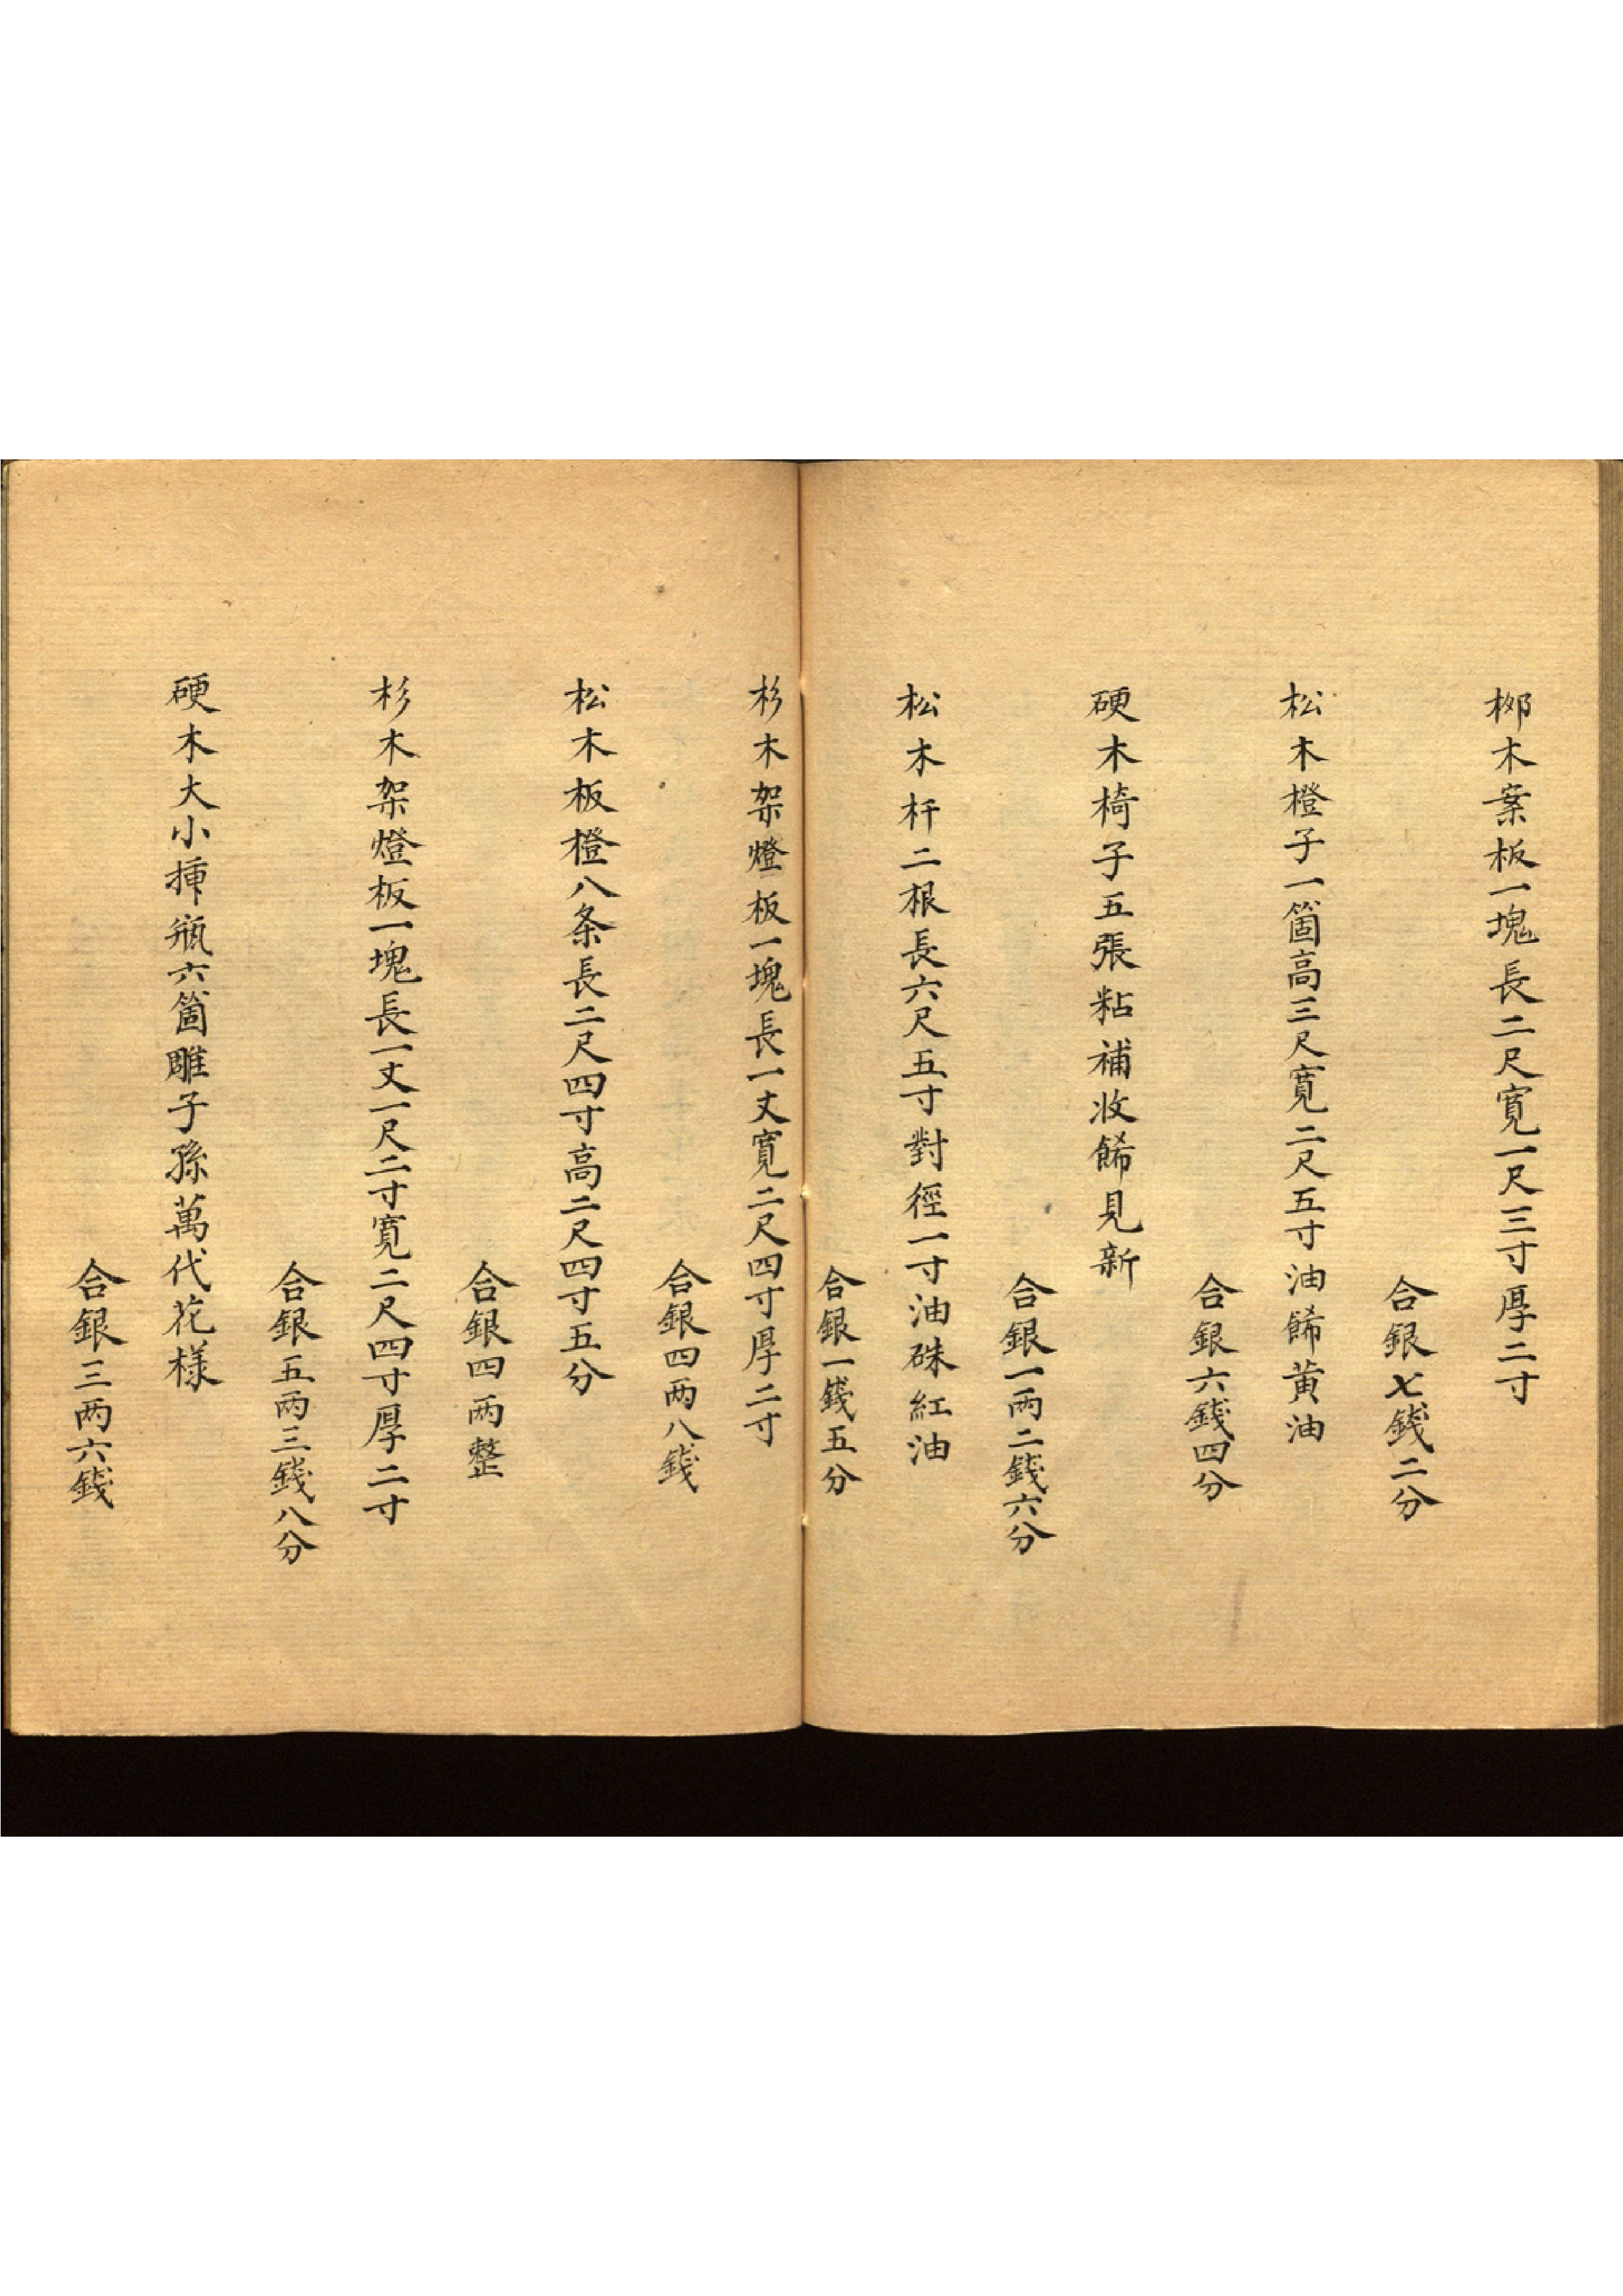 栁木案板一塊長二尺寛一尺三寸厚二寸
合銀七錢二分
松木橙子一箇高三尺寛二尺五寸油餙黄油
合銀六錢四分
硬木椅子五張粘補收餙見新
合銀一两二錢六分
松木杆二根長六尺五寸對徑一寸油硃紅油
合銀一錢五分
杉木架燈板一塊長一丈寛二尺四寸厚二寸
合銀四两八錢
松木板橙八条長二尺四寸高二尺四寸五分
合銀四两整
杉木架燈板一塊長一丈一尺二寸寛二尺四寸厚二寸
合銀五两三錢八分
硬木大小揷瓶六箇雕子孫萬代花様
合銀三两六錢